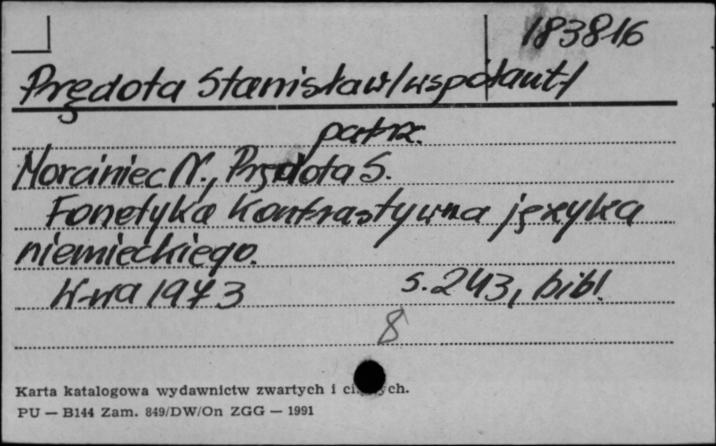 183816
Prędota Stanisław/współaut/
patrz.
Morciniec N., Prędota S.
Fonetyka kontrastywna języka
niemieckiego.
W-wa 1973 s. 243, bibl.
8
Karta katalogowa wydawnictw zwartych i ch.
PU — B144 Zam. 849/DW/On ZGG — 1991